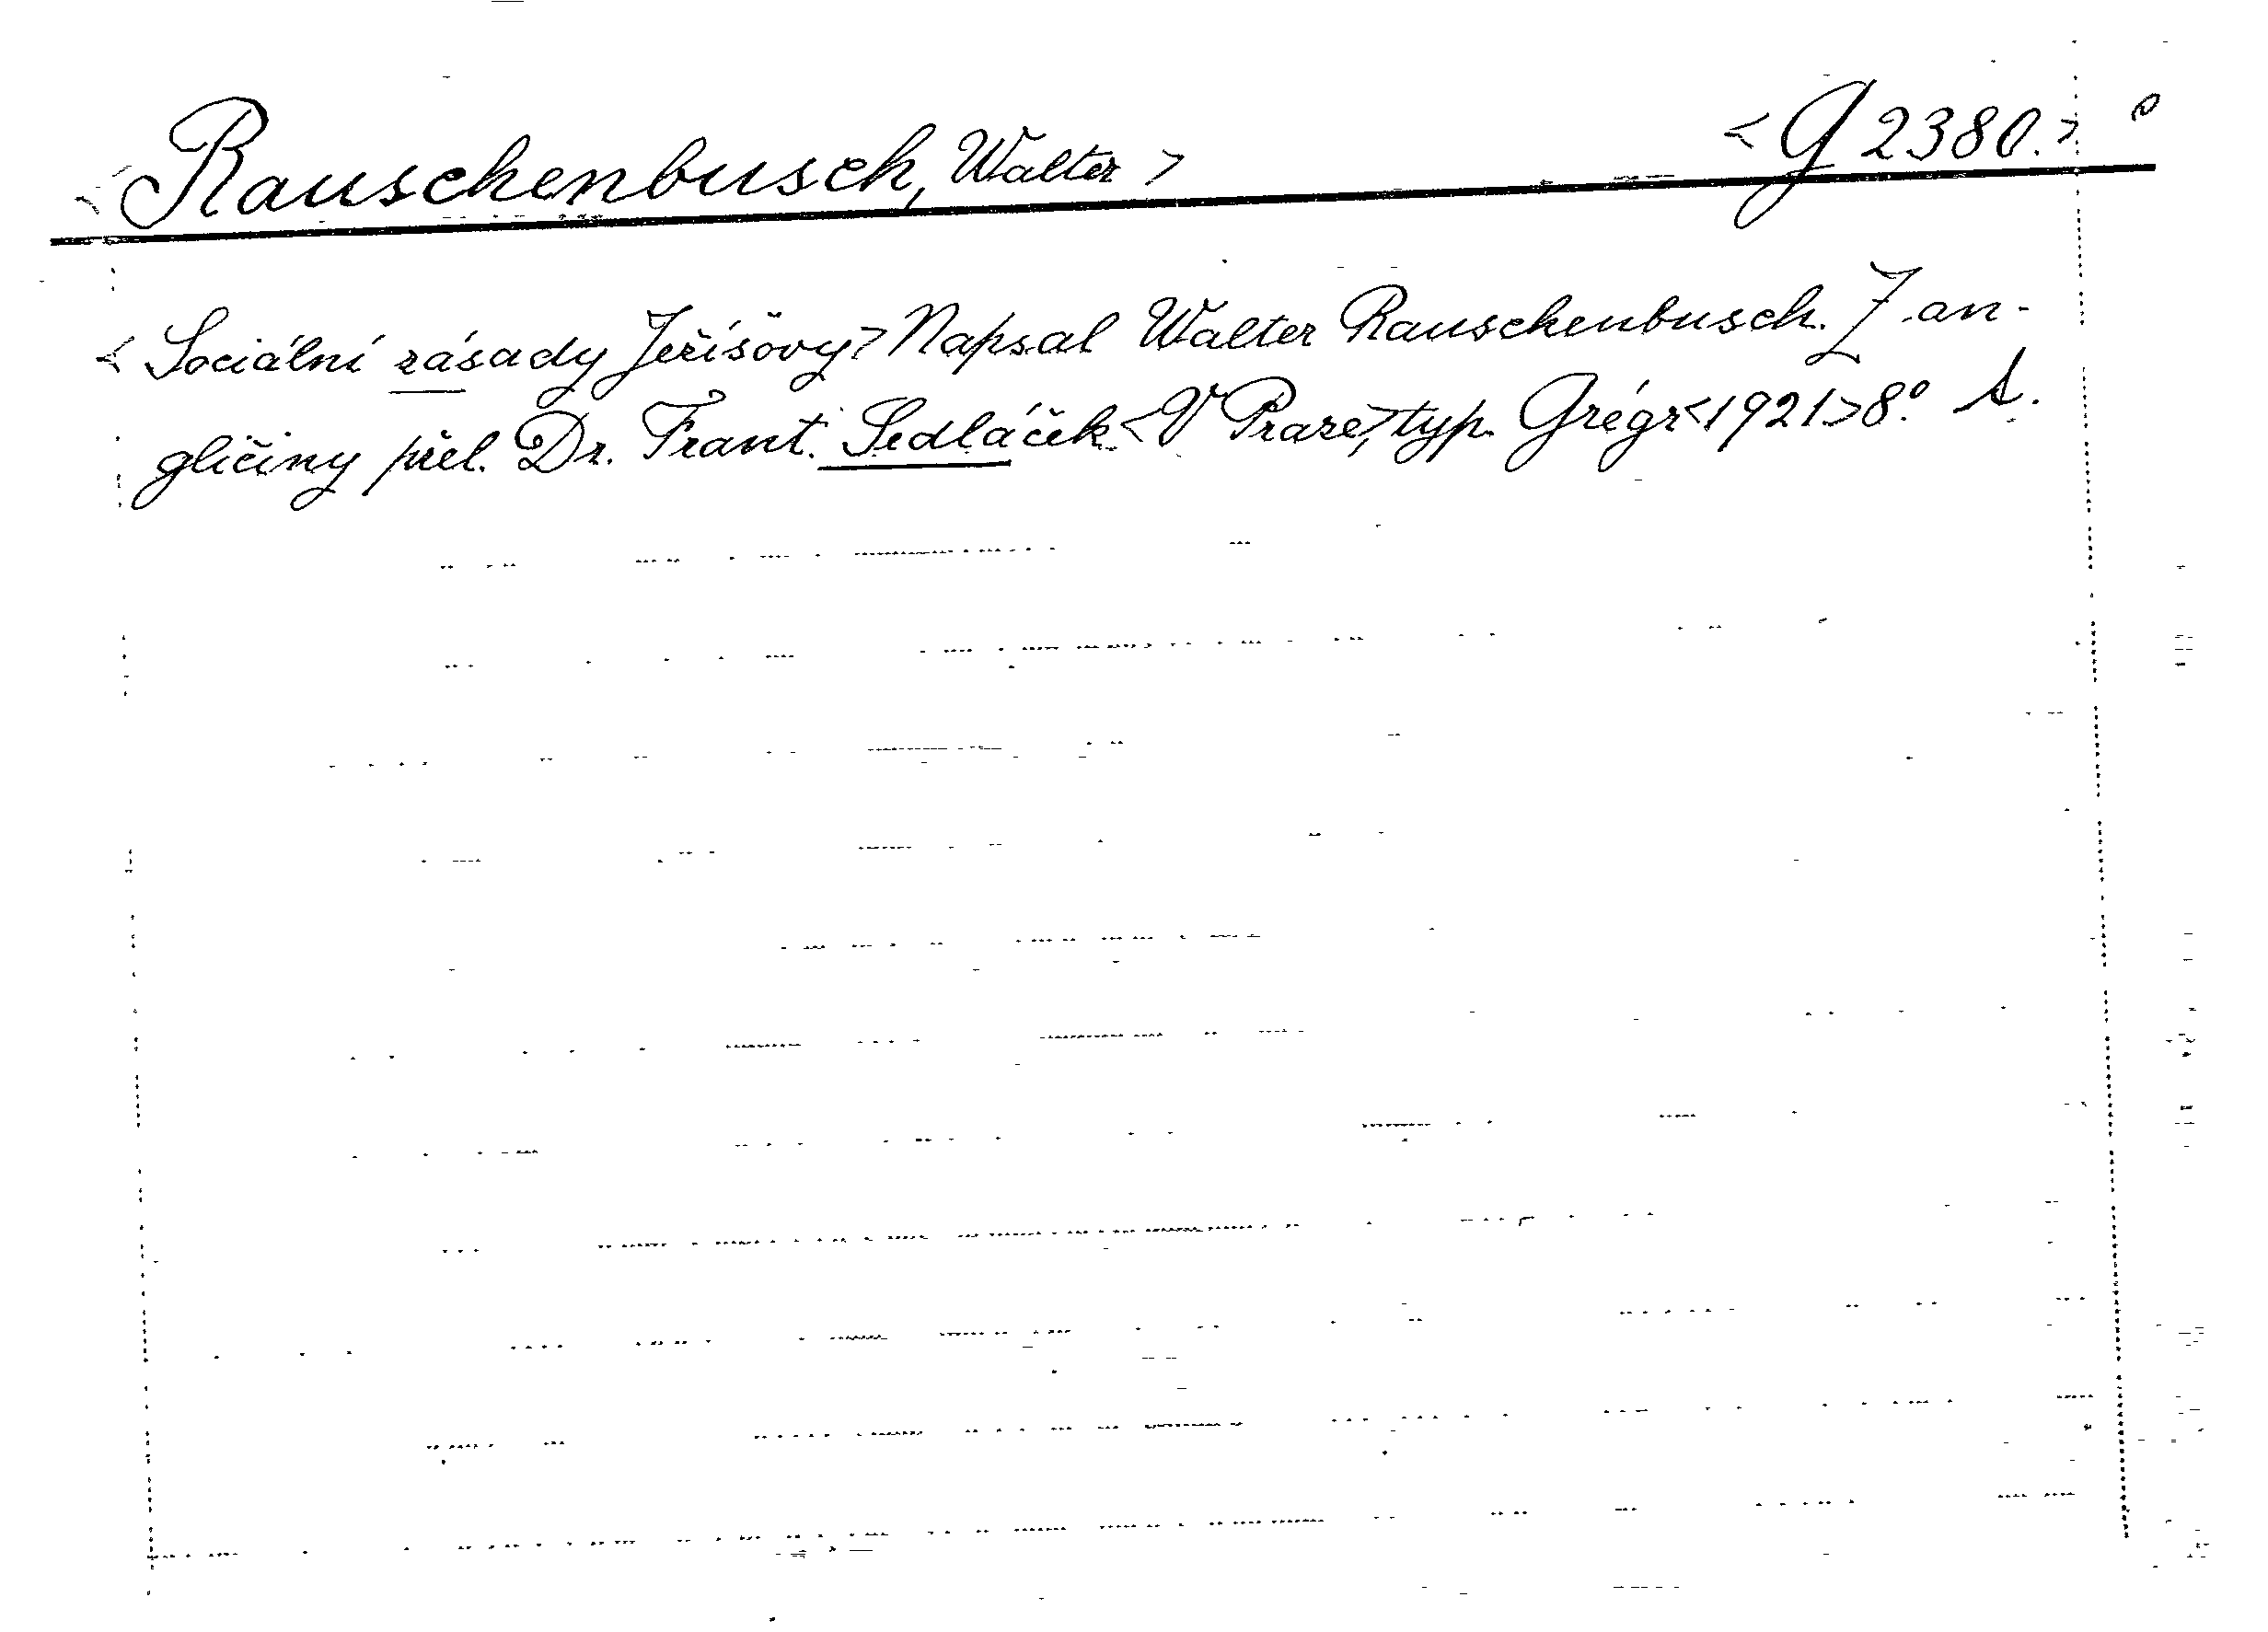 <Rauschenbusch, Walter> <G 2380.>
<Sociální zásady Ježíšovy> Napsal Walter Rauschenbusch. Z an-
gličiny přel. Dr. Frant. Sedláček. <V Praze,> typ. Grégr <1921> 8º. A.